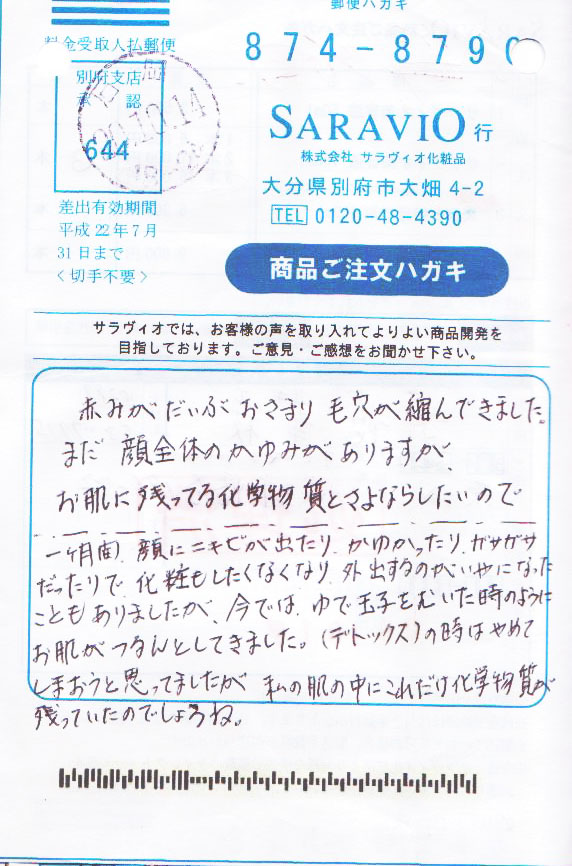 郵便ハガキ
料金受取人払郵便
874-8790
別府支店
承認
644
20.10.14
SARAVIO 行
株式会社 サラヴィオ化粧品
大分県別府市大畑 4-2
TEL 0120-48-4390
差出有効期間
平成22年7月
31日まで
<切手不要>
商品ご注文ハガキ
サラヴィオでは、お客様の声を取り入れてよりよい商品開発を
目指しております。ご意見・ご感想をお聞かせ下さい。
赤みがだいぶおさまり毛穴が縮んできました。
まだ顔全体のかゆみがありますが、
お肌に残ってる化学物質とさよならしたいので
一ヶ月間、顔にニキビが出たり、かゆかったり、ガサガサ
だったりで、化粧もしたくなくなり、外出するのがいやになった
こともありましたが、今では、ゆで玉子をむいた時のように
お肌がつるんとしてきました。(デトックス)の時はやめて
しまおうと思ってましたが 私の肌の中にこれだけ化学物質が
残っていたのでしょうね。